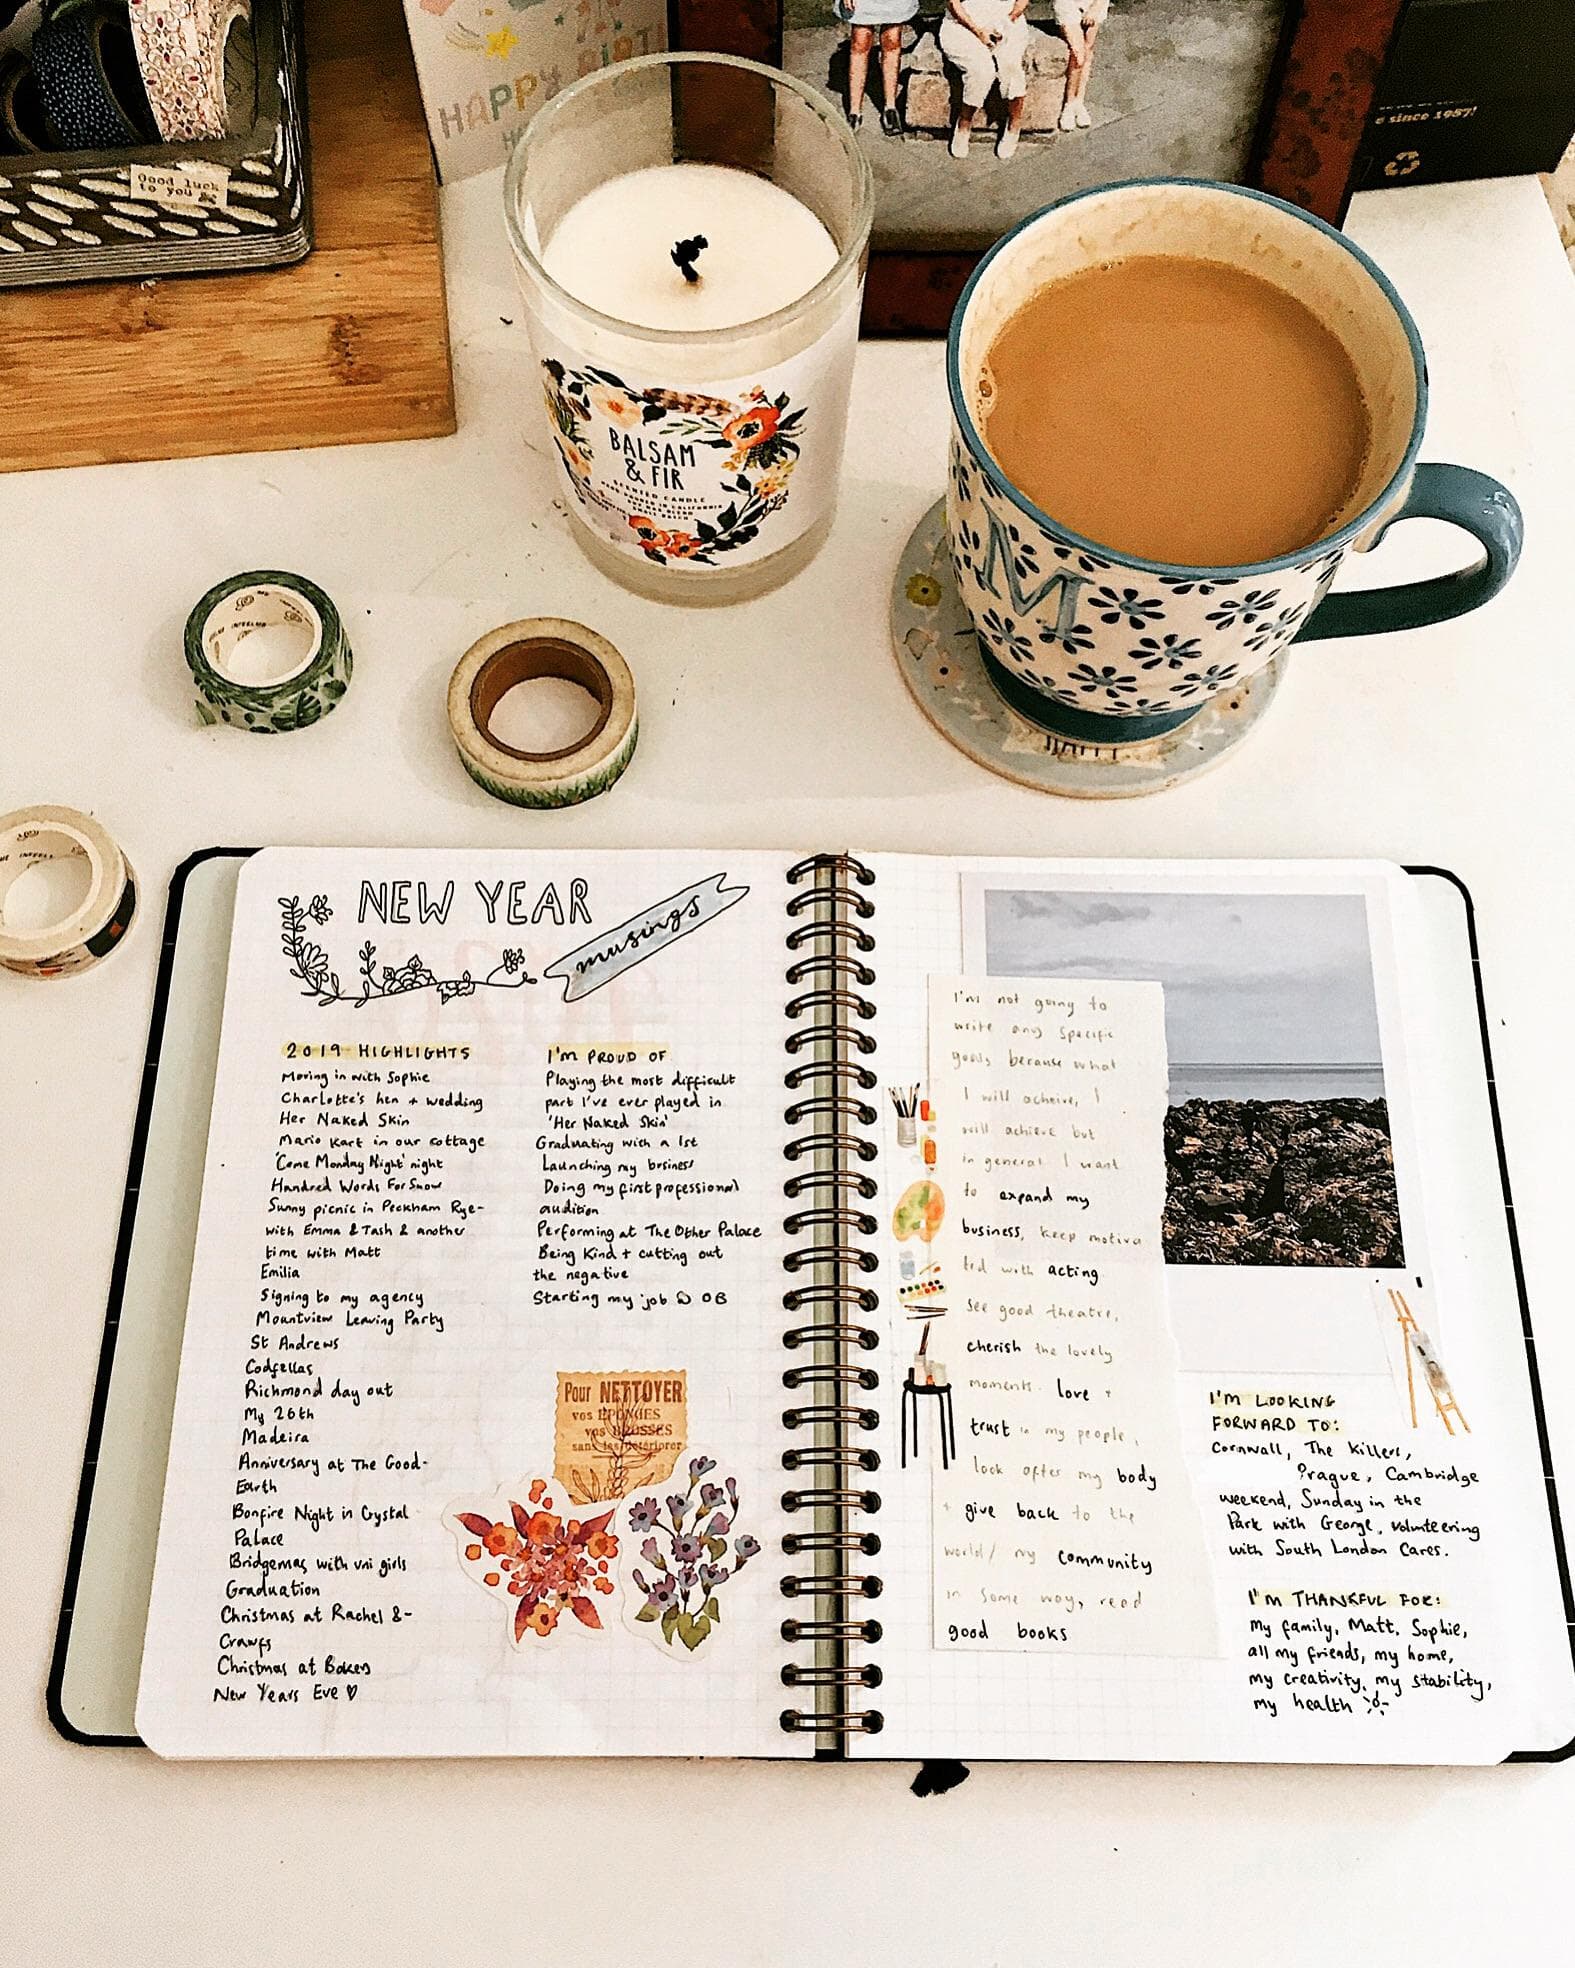 Good luck
to you
HAPPY BIRT
e since 1987!
BALSAM
& FIR
SCENTED CANDLE
SMALL BATCH
M
HAPPY
NEW YEAR
musings
2019 HIGHLIGHTS
Moving in with Sophie
Charlotte's hen + wedding
Her Naked Skin
Mario Kart in our cottage
'Come Monday Night' night
Hundred Words For Snow
Sunny picnic in Peckham Rye-
with Emma & Tash & another
time with Matt
Emilia
Signing to my agency
Mountview Leaving Party
St Andrews
Codfellas
Richmond day out
My 26th
Madeira
Anniversary at The Good-
Earth
Bonfire Night in Crystal
Palace
Bridgemas with uni girls
Graduation
Christmas at Rachel &-
Crawfs
Christmas at Bakers
New Years Eve ♡
I'M PROUD OF
Playing the most difficult
part I've ever played in
'Her Naked Skin'
Graduating with a 1st
Launching my business
Doing my first professional
audition
Performing at The Other Palace
Being Kind + cutting out
the negative
Starting my job @ OB
Pour NETTOYER
vos EPONGES
vos BROSSES
sans les détériorer
I'm not going to
write any specific
goals because what
I will acheive, I
will achieve but
in general I want
to expand my
business, keep motiva
ted with acting
see good theatre,
cherish the lovely
moments. love +
trust in my people,
look after my body
+ give back to the
world/ my community
in some way, read
good books
I'M LOOKING
FORWARD TO:
Cornwall, The Killers,
Prague, Cambridge
weekend, Sunday in the
Park with George, volunteering
with South London Cares.
I'M THANKFUL FOR:
my family, Matt, Sophie,
all my friends, my home,
my creativity, my stability,
my health